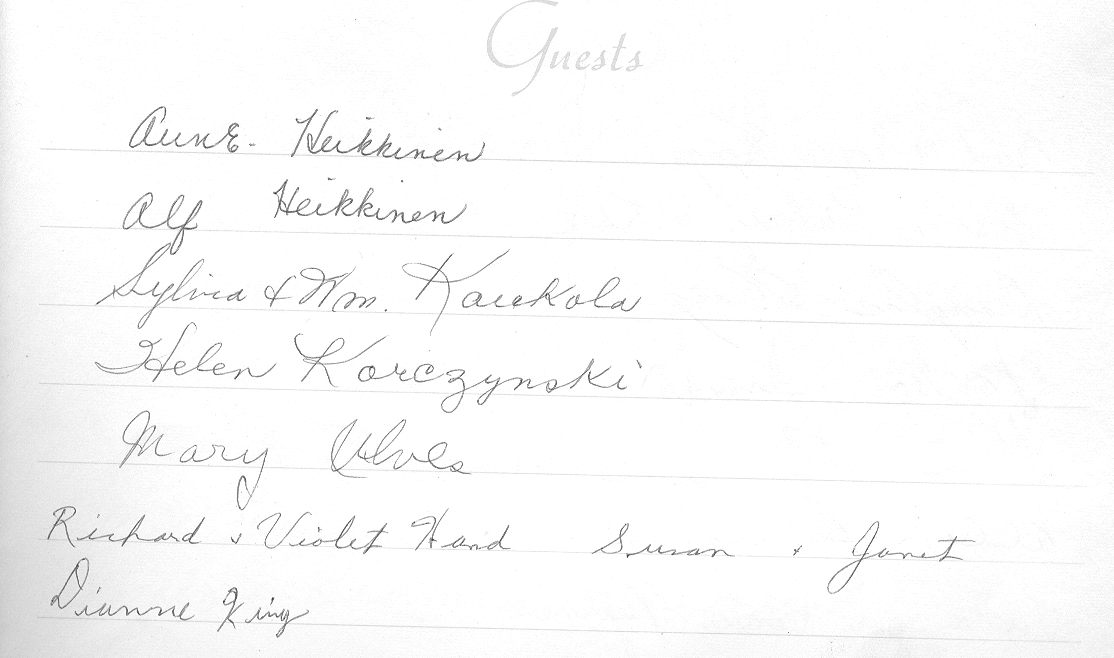 Guests
Aune. Heikkinen
Alf Heikkinen
Sylvia & Wm. Kaukola
Helen Korczynski
Mary
Richard & Violet Hand Susan & Janet
Dianne King